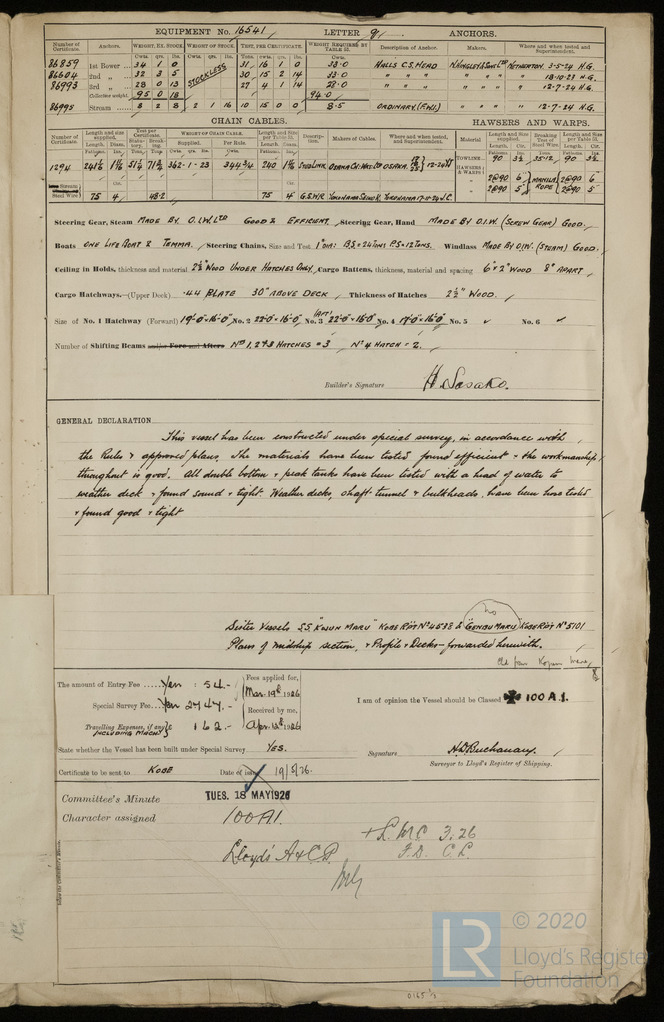 EQUIPMENT No. 16541 LETTER ANCHORS.
Number of Certificate. Anchors. WEIGHT, EX. STOCK. WEIGHT OF STOCK. TEST, PER CERTIFICATE. WEIGHT REQUIRED BY TABLE 53. Description of Anchor. Makers. Where and when tested and Superintendent.
86859 1st Bower 34 1 0 STOCKLESS 31 16 1 0 33·0 HALLS C.S. HEAD N. HINGLEY & SONS LTD NETHERTON 3-5-24 H.G.
86604 2nd " 32 3 5 30 15 2 14 33·0 " " " " " " " 18-10-23 H.G.
86993 3rd " 28 0 13 27 4 1 14 28·0 " " " " " " " 12-7-24 H.G.
Collective weight 95 0 18 94·0
86995 Stream 8 2 8 2 1 16 10 15 0 0 8·5 ORDINARY (F.W.I.) " " " " 12-7-24 H.G.
CHAIN CABLES. HAWSERS AND WARPS.
Number of Certificate. Length and size supplied. Test per Certificate. WEIGHT OF CHAIN CABLE. Length and Size per Table 53. Description. Makers of Cables. Where and when tested, and Superintendent. Material Length and Size supplied. Breaking Test of Steel Wire. Length and Size per Table 53.
Fathoms. Ins. Supplied. Per Rule. Fathoms. Ins.
TOWLINE 90 3½ 35·12 90 3½
HAWSERS & WARPS
1294 362-1-23 344¾ 240 STUD LINK OSAKA
2@90 6 MANILA ROPE 2@90 6
2@90 5 2@90 5
Stream Steel Wire 75 4 48·2 75 4 G.S.W.R. YOKOHAMA 17-11-24 J.C.
Steering Gear, Steam MADE BY O.I.W. LTD GOOD & EFFICIENT, Steering Gear, Hand MADE BY O.I.W. (SCREW GEAR) GOOD.
Boats ONE LIFE BOAT & TEMMA. Steering Chains, Size and Test 1" DIA: B.S. = 24 TONS P.S = 12 TONS. Windlass MADE BY O.I.W. (STEAM) GOOD.
Ceiling in Holds, thickness and material 2½" WOOD UNDER HATCHES ONLY, Cargo Battens, thickness, material and spacing 6" × 2" WOOD 8" APART
Cargo Hatchways.—(Upper Deck) ·44 PLATE 30" ABOVE DECK, Thickness of Hatches 2½" WOOD.
Size of No. 1 Hatchway (Forward) 19'-0" × 16'-0", No. 2 22'-0" × 16'-0", No. 3 (AFT) 22'-0" × 16'-0", No. 4 17'-0" × 16'-0", No. 5 ✓ No. 6 ✓
Number of Shifting Beams and/or Fore and Afters No 1, 2 & 3 HATCHES = 3, No 4 HATCH = 2.
Builder's Signature H. Sasako.
GENERAL DECLARATION
This vessel has been constructed under special survey, in accordance with
the Rules & approved plans. The materials have been tested found efficient & the workmanship
throughout is good. All double bottom & peak tanks have been tested with a head of water to
weather deck & found sound & tight. Weather decks, shaft tunnel & bulkheads, have been hose tested
& found good & tight
no
Sister Vessels S.S. "KOSUN MARU" KOBE RPT No 4538 & "GENBU MARU" KOBE RPT No 5101
Plans of midship section, & Profile & Decks forwarded herewith.
The amount of Entry Fee Yen : 54.-
Special Survey Fee Yen 2747.-
Travelling Expenses, if any INCLUDING MACHY 162.-
Fees applied for, Mar. 19th 1926
Received by me, 1926
I am of opinion the Vessel should be Classed ✠ 100 A.1.
State whether the Vessel has been built under Special Survey YES.
Signature H.D. Buchanan.
Surveyor to Lloyd's Register of Shipping.
Certificate to be sent to KOBE Date of issue 19/5/26.
Committee's Minute TUES. 18 MAY 1926
Character assigned 100A1.
+ L.M.C. 3.26
F.D. C.L.
Lloyd's A & C.P.
© 2020
LR
Lloyd's Register
Foundation